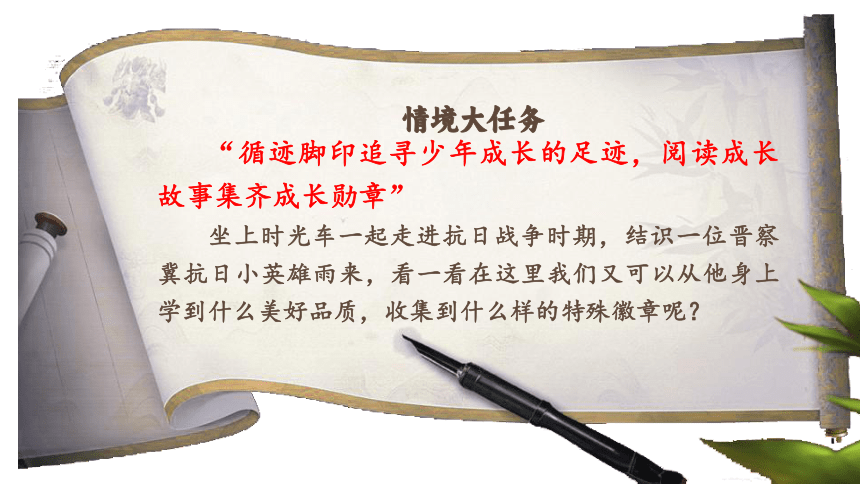 情境大任务
“循迹脚印追寻少年成长的足迹，阅读成长
故事集齐成长勋章”
坐上时光车一起走进抗日战争时期，结识一位晋察
冀抗日小英雄雨来，看一看在这里我们又可以从他身上
学到什么美好品质，收集到什么样的特殊徽章呢？